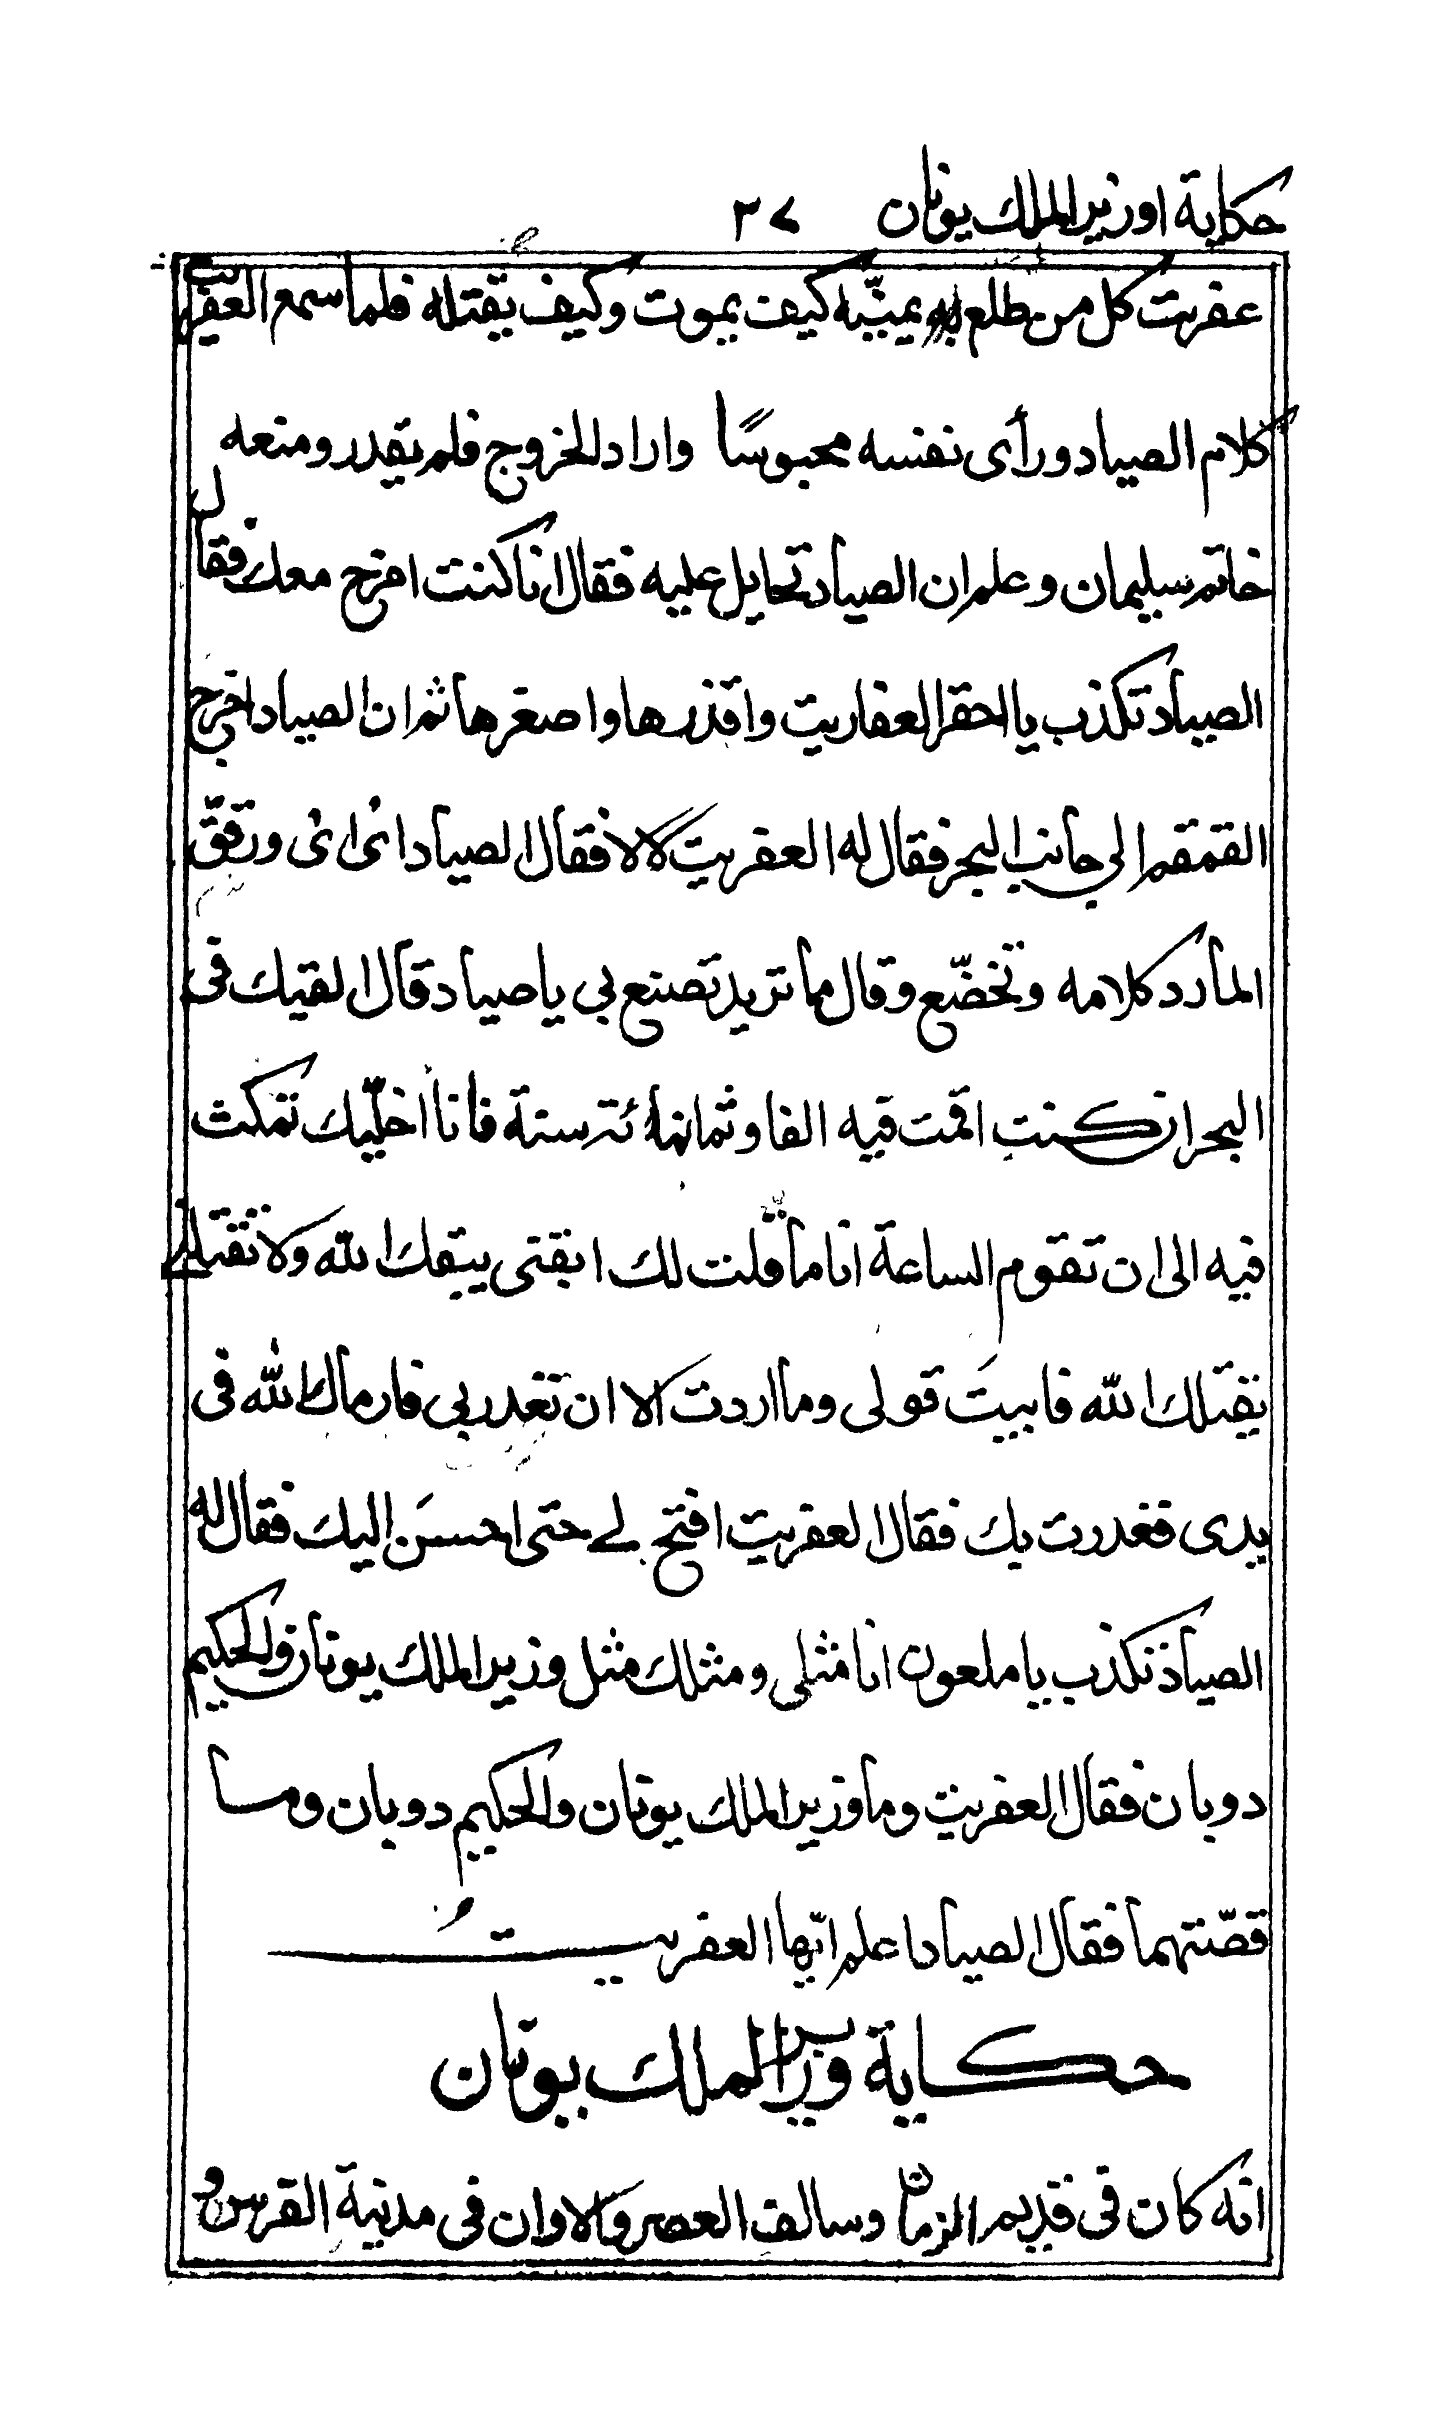 حكاية اوزير الملك يونان ٣٧
عفريت كل من طلع به يمنّيه كيف يموت وكيف يقتله فلما سمع العفريت
كلام الصياد ورأى نفسه محبوسًا واراد الخروج فلم يقدر ومنعه
خاتم سليمان وعلم ان الصياد تحايل عليه فقال انا كنت امزح معك فقال
الصياد تكذب يا احقر العفاريت واقذرها واصغرها ثم ان الصياد اخرج
القمقم الى جانب البحر فقال له العفريت لا لا فقال الصياد اىْ اىْ ورقّق
المارد كلامه وتخضّع وقال ما تريد تصنع بي يا صياد قال القيك فى
البحر ان كنت اقمت فيه الفا وثمانمائة سنة فانا اخلّيك تمكث
فيه الى ان تقوم الساعة انا ما قلت لك ابقنى يبقك الله ولا تقتلنى
يقتلك الله فابيتَ قولى وما اردت الا ان تغدر بي فارماك الله فى
يدى فغدرت بك فقال العفريت افتح لى حتى احسنَ اليك فقال له
الصياد تكذب يا ملعون انا مثلى ومثلك مثل وزير الملك يونان والحكيم
دوبان فقال العفريت وما وزير الملك يونان والحكيم دوبان وما
قصّتهما فقال الصياد اعلم ايّها العفريت
حكاية وزير الملك يونان
انه كان فى قديم الزمان وسالف العصر والاوان فى مدينة الفرس و